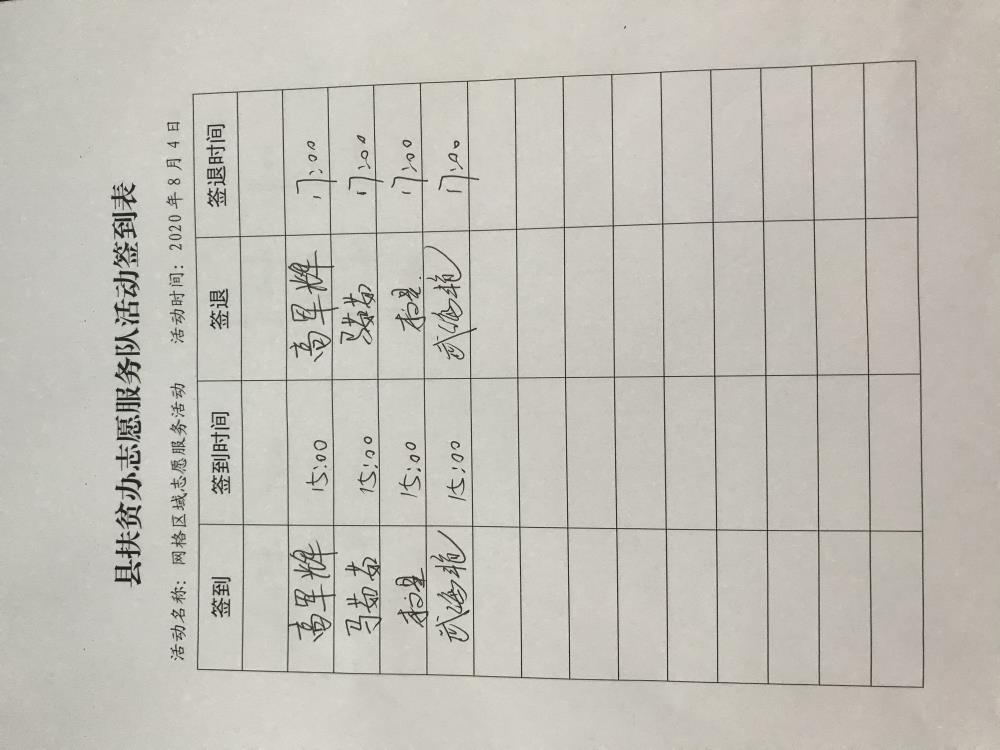 县扶贫办志愿服务队活动签到表
活动名称：网格区域志愿服务活动 活动时间：2020年8月4日
签到 签到时间 签退 签退时间
高军辉 15:00 高军辉 17:00
马茹茹 15:00 马茹茹 17:00
15:00 17:00
武海艳 15:00 武海艳 17:00